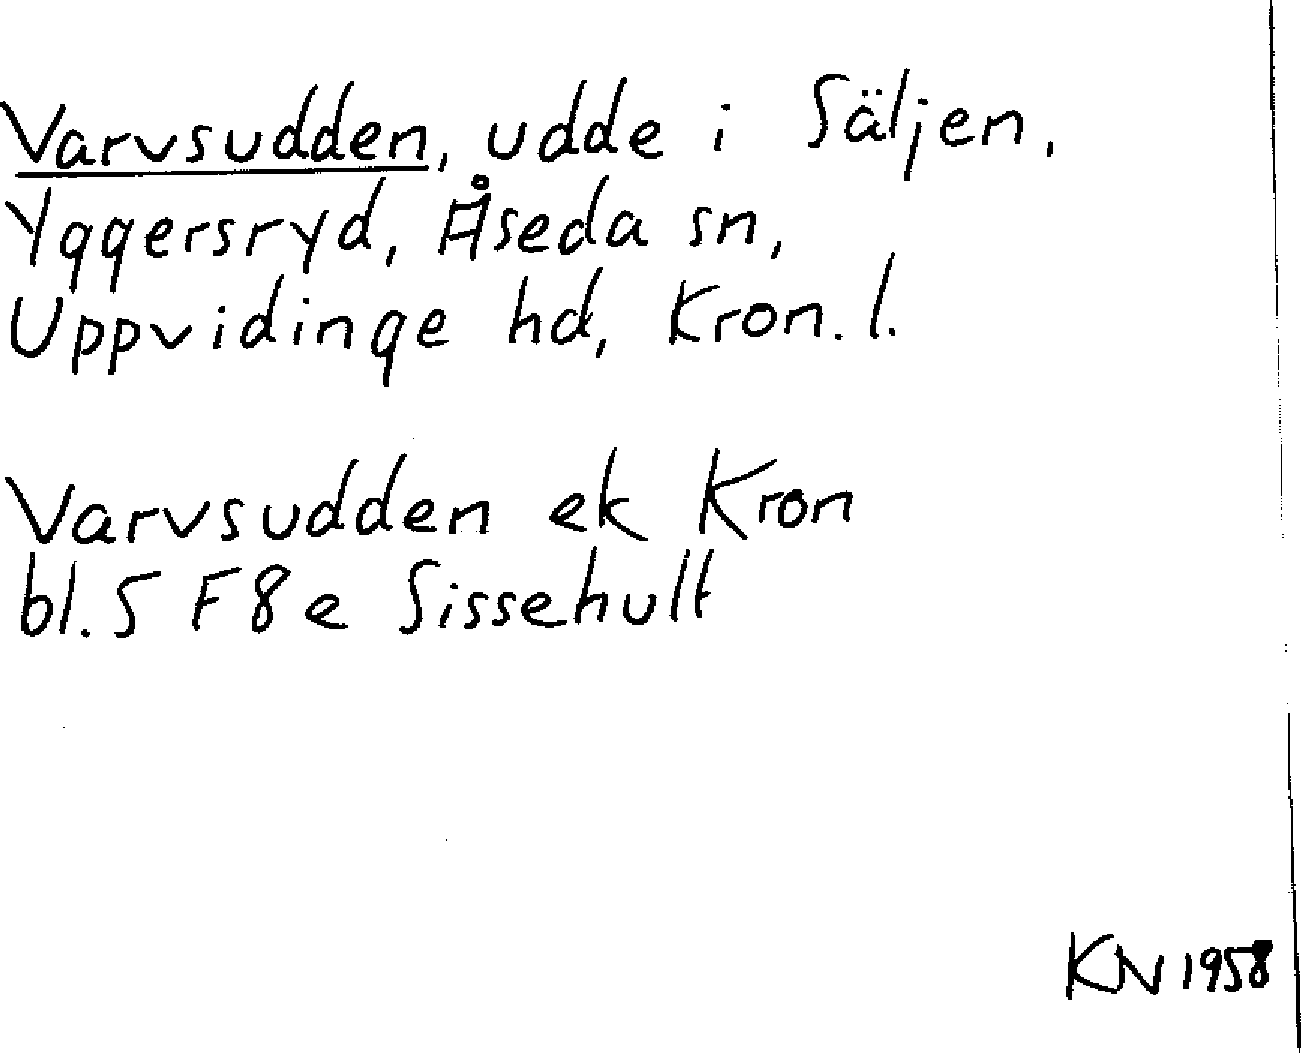 Varvsudden, udde i Säljen,
Yggersryd, Åseda sn,
Uppvidinge hd, Kron. l.
Varvsudden ek Kron
bl. 5 F 8 e Sissehult
KN 1958